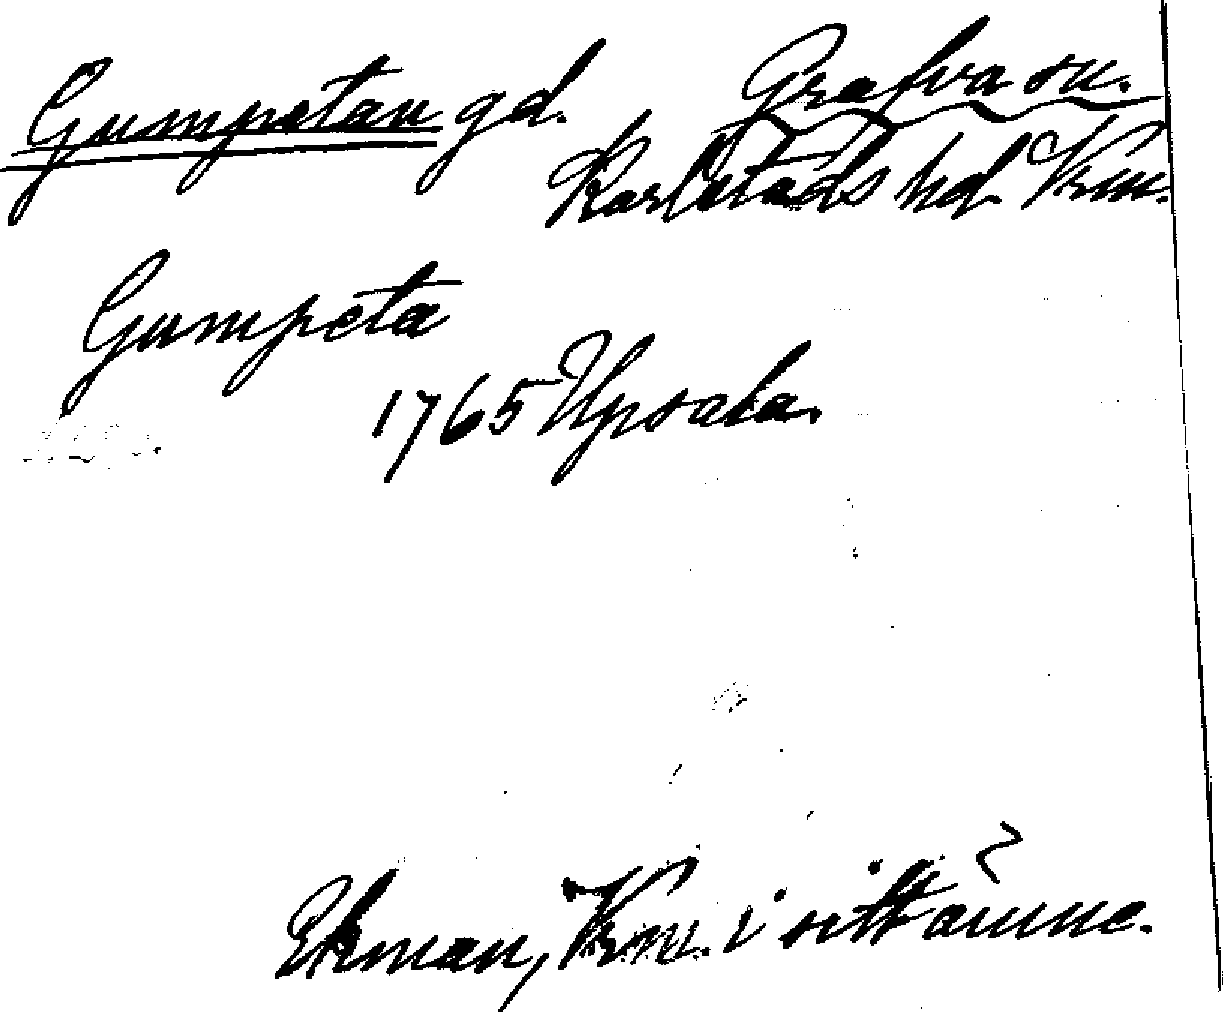 Gumpetan gd. Grafva sn.
Karlstads hd. Vrm.
Gumpeta
1765 Upsala.
Ekman, Vrm. i sitt ämne.